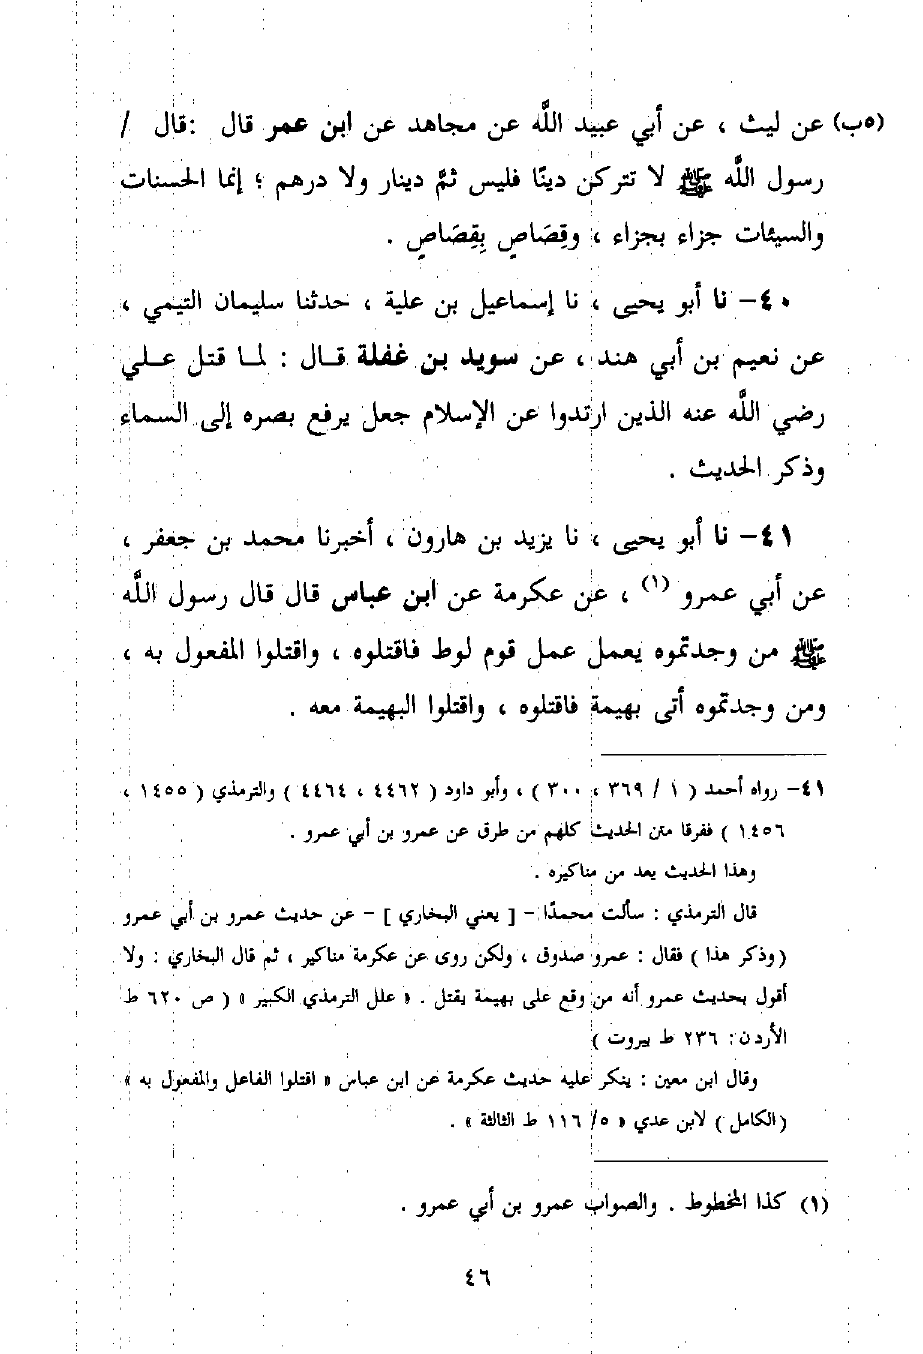 (٥ب) عن ليث ، عن أبي عبيد اللَّه عن مجاهد عن ابن عمر قال :قال /
رسول اللَّه ﷺ لا تتركن دينًا فليس ثمَّ دينار ولا درهم ؛ إنما الحسنات
والسيئات جزاء بجزاء ، وقِصَاصٍ بِقِصَاصٍ .
٤٠- نا أبو يحيى ، نا إسماعيل بن علية ، حدثنا سليمان التيمي ،
عن نعيم بن أبي هند ، عن سويد بن غفلة قال : لما قتل علي
رضي اللَّه عنه الذين ارتدوا عن الإسلام جعل يرفع بصره إلى السماء
وذكر الحديث .
٤١- نا أبو يحيى ، نا يزيد بن هارون ، أخبرنا محمد بن جعفر ،
عن أبي عمرو (١) ، عن عكرمة عن ابن عباس قال قال رسول اللَّه
ﷺ من وجدتموه يعمل عمل قوم لوط فاقتلوه ، واقتلوا المفعول به ،
ومن وجدتموه أتى بهيمة فاقتلوه ، واقتلوا البهيمة معه .
٤١- رواه أحمد ( ١ / ٣٦٩ ، ٣٠٠ ) ، وأبو داود ( ٤٤٦٢ ، ٤٤٦٤ ) والترمذي ( ١٤٥٥ ،
١٤٥٦ ) ففرقا متن الحديث كلهم من طرق عن عمرو بن أبي عمرو .
وهذا الحديث يعد من مناكيره .
قال الترمذي : سألت محمدًا - [ يعني البخاري ] - عن حديث عمرو بن أبي عمرو
(وذكر هذا ) فقال : عمرو صدوق ، ولكن روى عن عكرمة مناكير ، ثم قال البخاري : ولا
أقول بحديث عمرو أنه من وقع على بهيمة يقتل . « علل الترمذي الكبير » ( ص ٦٢٠ ط
الأردن : ٢٣٦ ط بيروت )
وقال ابن معين : ينكر عليه حديث عكرمة عن ابن عباس « اقتلوا الفاعل والمفعول به »
(الكامل ) لابن عدي « ٥/ ١١٦ ط الثالثة » .
(١) كذا المخطوط . والصواب عمرو بن أبي عمرو .
٤٦